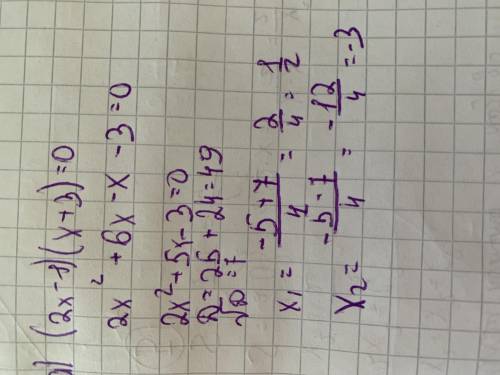 (2x-1)(x+3)=0
2x² + 6x - x - 3 = 0
2x² + 5x - 3 = 0
D = 25 + 24 = 49
√D = 7
x₁ = (-5+7)/4 = 2/4 = 1/2
x₂ = (-5-7)/4 = -12/4 = -3